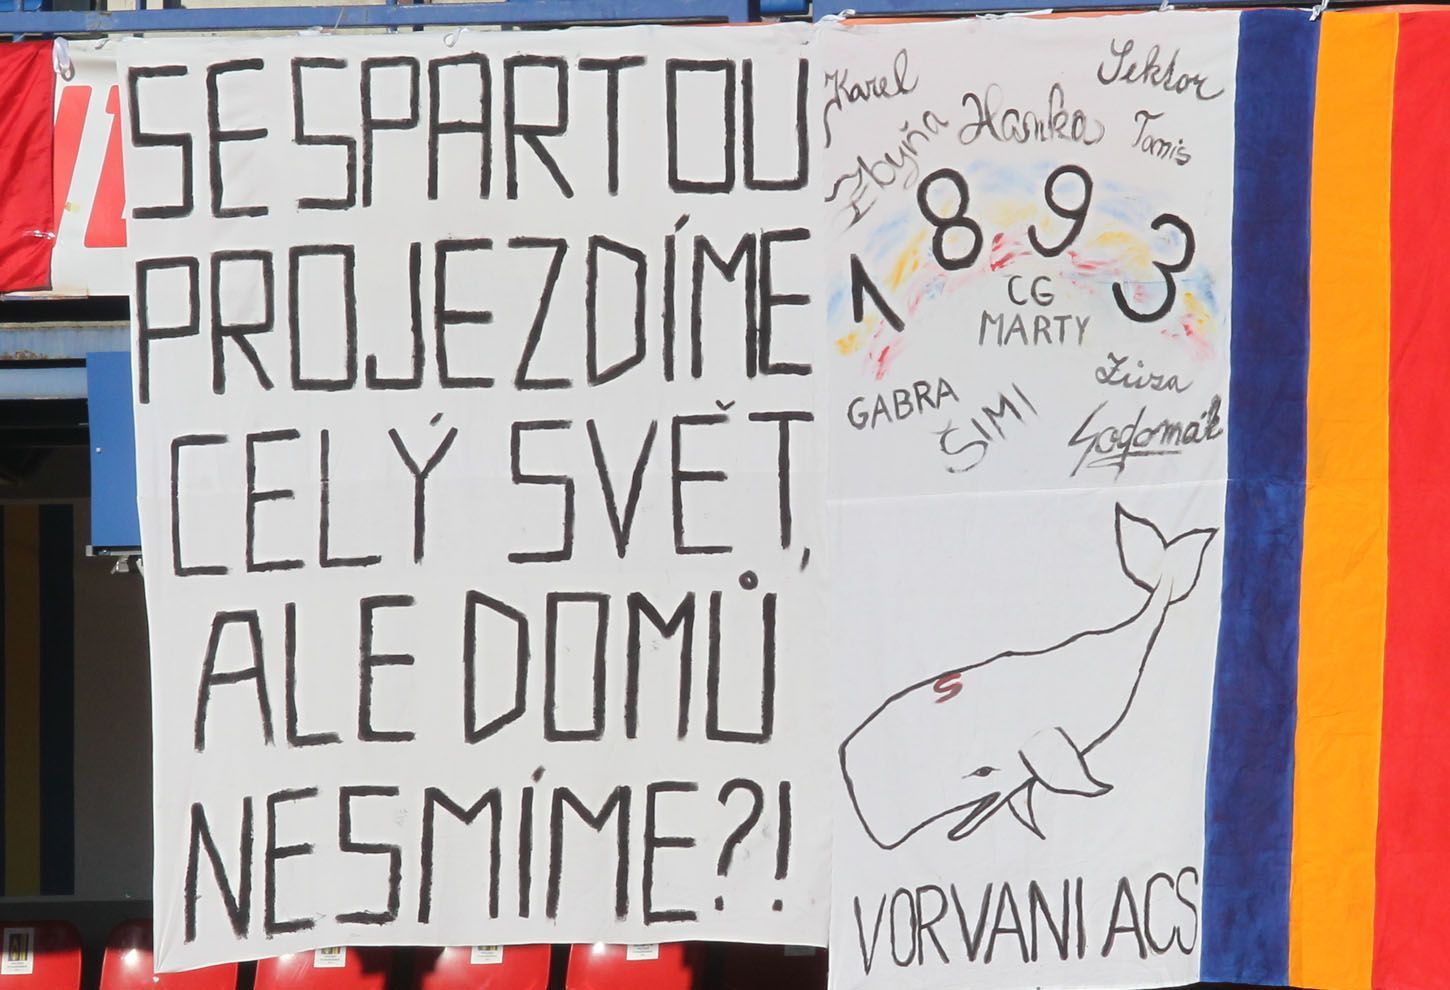 SE SPARTOU
PROJEZDÍME
CELÝ SVĚT,
ALE DOMŮ
NESMÍME?!
Karel
Sektor
Zbyňa
Hanka
Tomis
1893
CG
MARTY
GABRA
ŠIMI
Zůza
Sodomák
S
VORVANI ACS